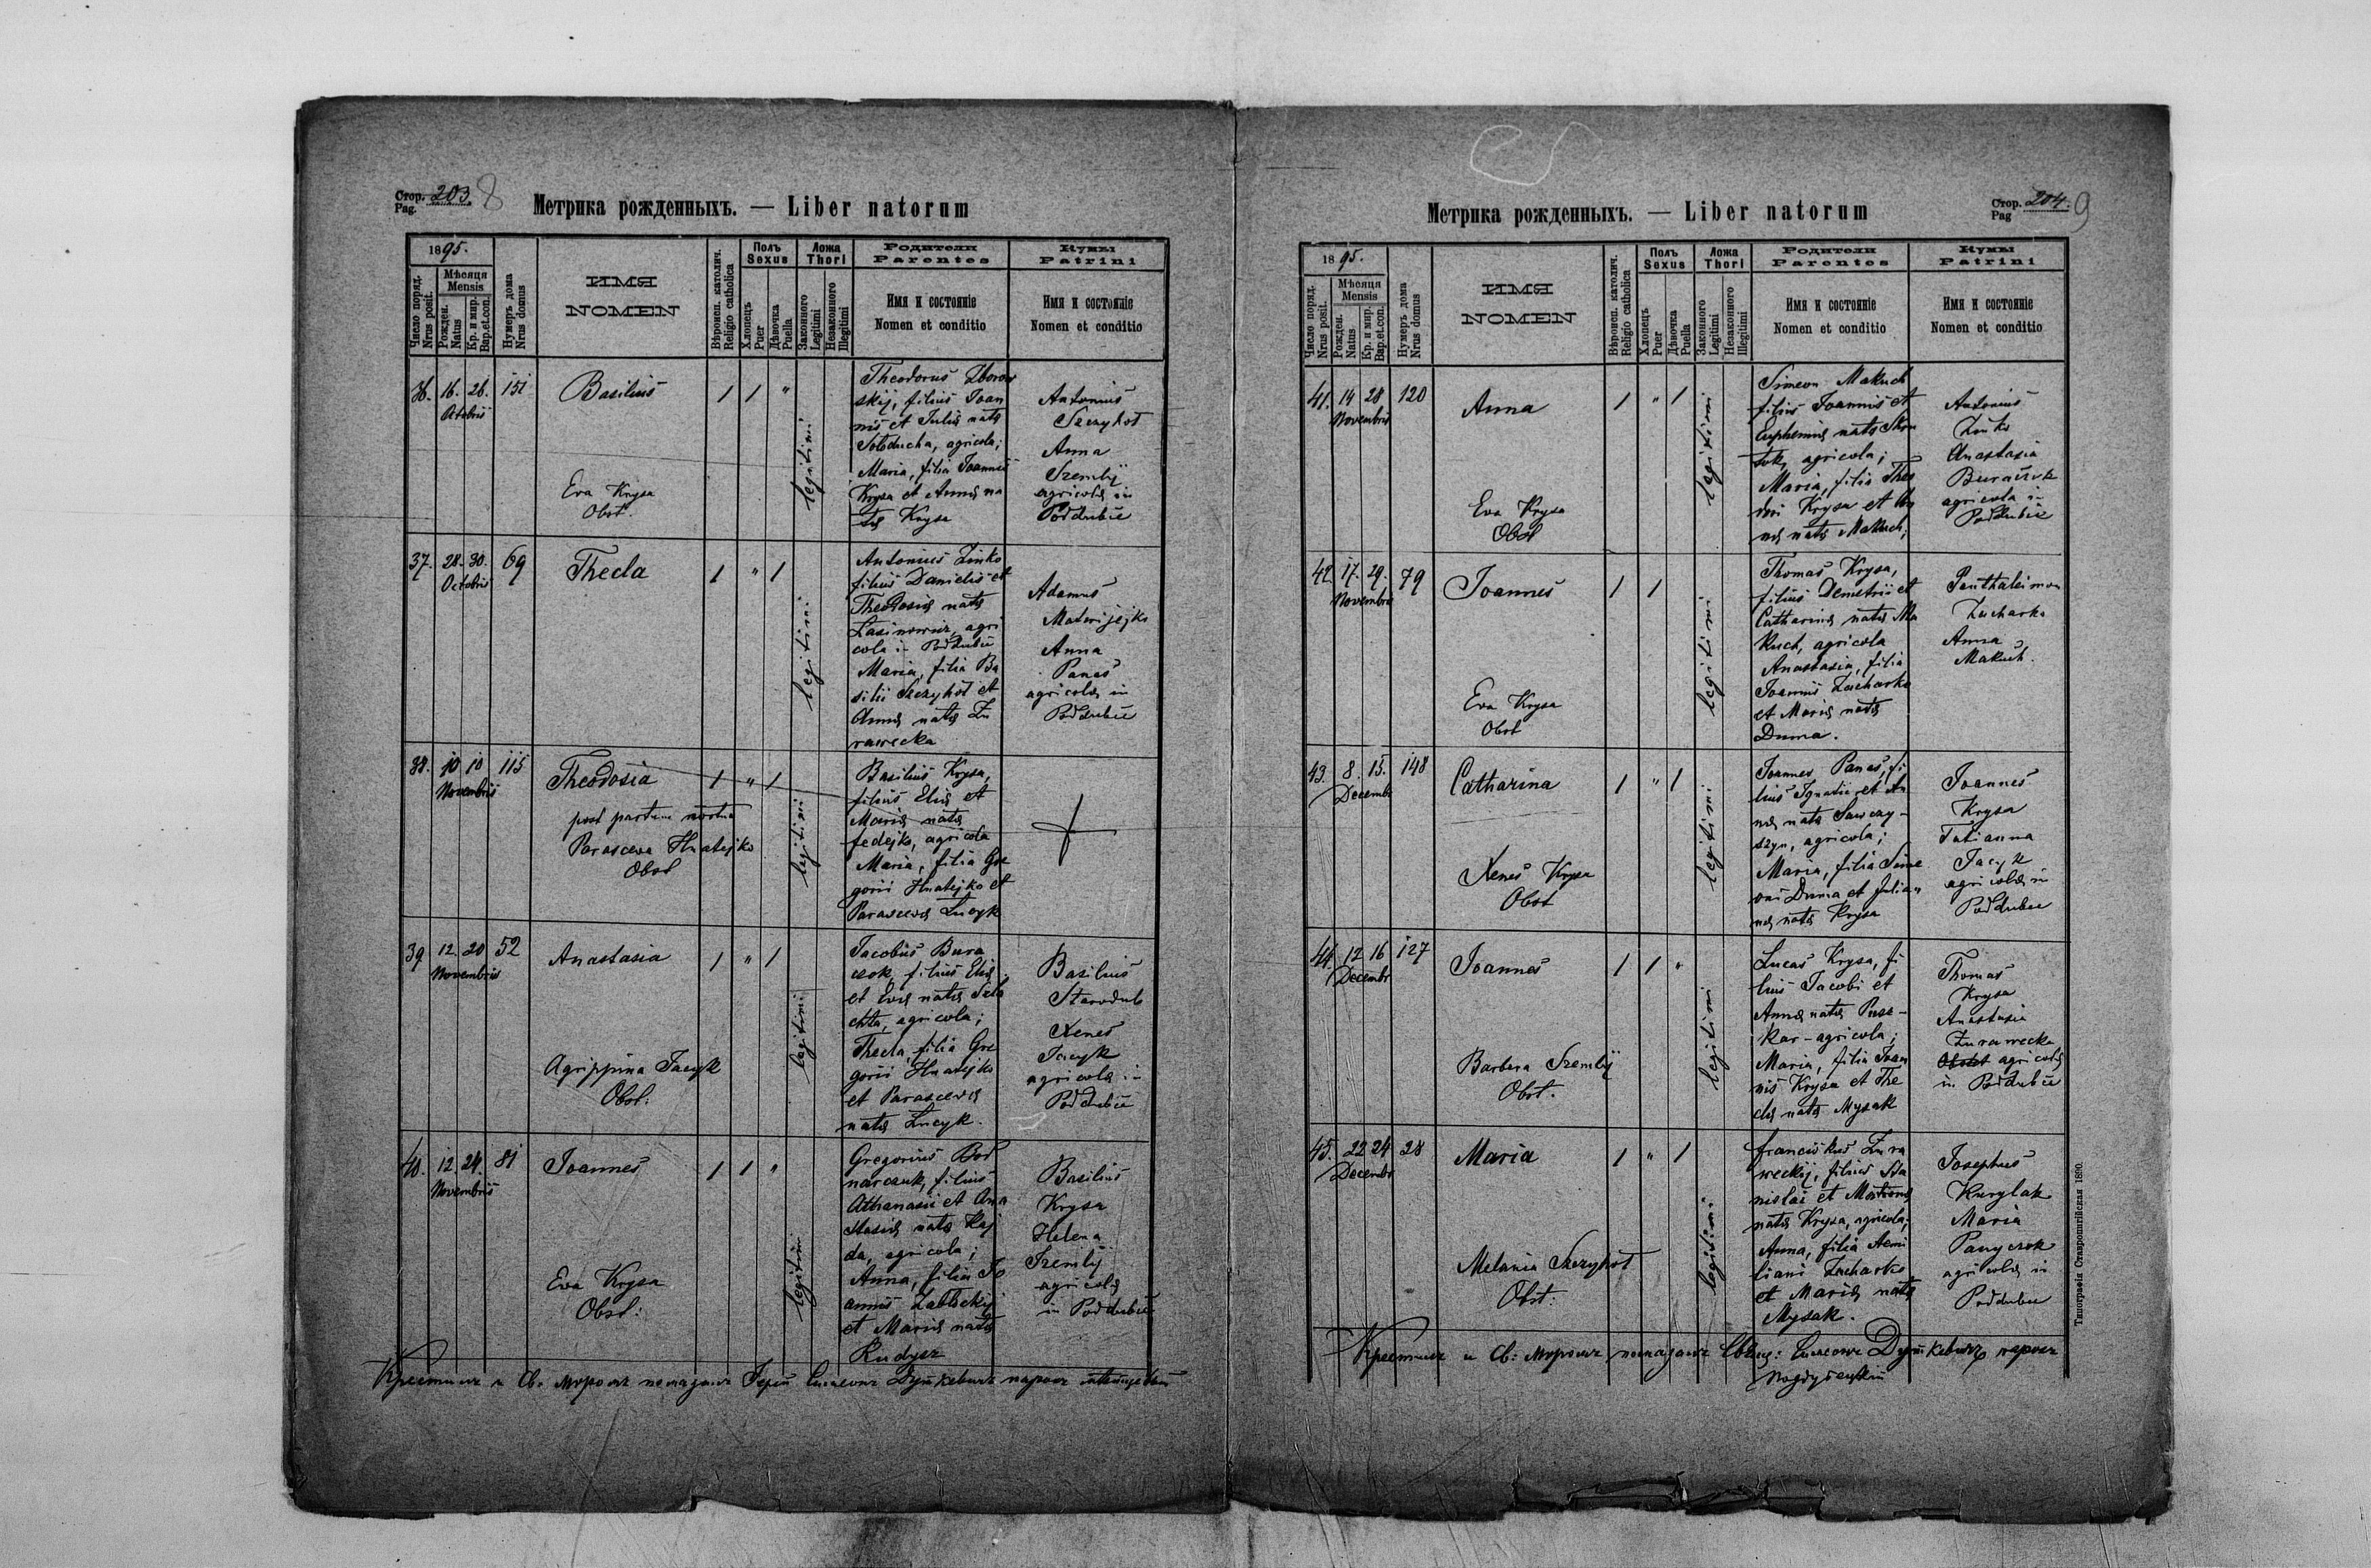 Стор. 203. 8
Pag.
Метрика рожденныхъ. — Liber natorum
1895.
Число поряд.
Nrus posit.
Мѣсяця
Mensis
Рожден.
Natus
Кр. и мир.
Bap.et.con.
Нумеръ дома
Nrus domus
ИМЯ
NOMEN
Вѣроисп. католич.
Religio catholica
Полъ
Sexus
Хлопецъ
Puer
Дѣвочка
Puella
Ложа
Thori
Законного
Legitimi
Незаконного
Illegitimi
Родители
Parentes
Имя и состояніе
Nomen et conditio
Кумы
Patrini
Имя и состояніе
Nomen et conditio
36. 16. 26. 151
Octobris
Basilius
1 1 "
legitimi
Eva Krysa
Obst.
Theodorus Zborow
skij, filius Joan
nis et Juliæ natæ
Soloducha, agricola;
Maria, filia Joannis
Krysa et Annæ na
tæ Krysa
Antonius
Szczykot
Anna
Szemlij
agricolæ in
Poddubce
37. 28. 30. 69
Octobris
Thecla
1 " 1
legitimi
Antonius Zinko
filius Danielis et
Theodosiæ natæ
agri
cola in Poddubce
Maria, filia Ba
silii Szczykot et
Annæ natæ Żu
rawecka
Adamus
Matwijejko
Anna
Panas
agricolæ in
Poddubce
38. 10 10 115
Novembris
Theodosia
post partum mortua
Parasceva Hnatejko
Obst
1 " 1
legitimi
Basilius Krysa,
filius Eliæ et
Mariæ natæ
Fedejko, agricola
Maria, filia Gre
gorii Hnatejko et
Parascevæ Lucyk
39 12. 20 52
Novembris
Anastasia
1 " 1
legitimi
Agrippina Jacyk
Obst.
Jacobus Bura
czok, filius Eliæ
et Evæ natæ
agricola;
Thecla, filia Gre
gorii Hnatejko
et Parascevæ
natæ Lucyk.
Basilius
Starodub
Xenes
Jacyk
agricolæ in
Poddubce
40. 12. 24. 81
Novembris
Joannes
1 1 "
legitimi
Eva Krysa
Obst:
Gregorius Bod
narczuk, filius
Athanasii et Ana
stasiæ natæ Haj
da, agricola;
Anna, filia Jo
annis Zablockij
et Mariæ natæ
Rudysz
Basilius
Krysa
Helena
Szemlij
agricolæ
in Poddubce
Крестилъ и Св. мѵромъ помазалъ Симеонъ парохъ
Метрика рожденныхъ. — Liber natorum
Стор. 204. 9
Pag
1895.
Число поряд.
Nrus posit.
Мѣсяця
Mensis
Рожден.
Natus
Кр. и мир.
Bap.et.con.
Нумеръ дома
Nrus domus
ИМЯ
NOMEN
Вѣроисп. католич.
Religio catholica
Полъ
Sexus
Хлопецъ
Puer
Дѣвочка
Puella
Ложа
Thori
Законного
Legitimi
Незаконного
Illegitimi
Родители
Parentes
Имя и состояніе
Nomen et conditio
Кумы
Patrini
Имя и состояніе
Nomen et conditio
41. 14 28 120
Novembris
Anna
1 " 1
legitimi
Eva Krysa
Obst
Simeon Makuch
filius Joannis et
Euphemiæ natæ
agricola;
Maria, filia Theo
dori Krysa et An
næ natæ Makuch;
Antonius
Zinko
Anastasia
Buraczok
agricola in
Poddubce
42. 17. 29. 79
Novembris
Joannes
1 1
legitimi
Eva Krysa
Obst
Thomas Krysa,
filius Demetrii et
Catharinæ natæ Ma
kuch, agricola
Anastasia, filia
Joannis Zacharko
et Mariæ natæ
Duma.
Panthaleimon
Zacharko
Anna
Makuch.
43. 8. 15. 148
Decembr
Catharina
1 " 1
legitimi
Xenes Krysa
Obst
Joannes Panas, fi
lius Ignatii et An
næ natæ Sawczy-
szyn, agricola;
Maria, filia Sime
oni Duma et Julian
næ natæ Krysa
Joannes
Krysa
Tatianna
Jacyk
agricolæ in
Poddubce
44. 12 16 127
Decembr
Joannes
1 1 "
legitimi
Barbara Szemlij
Obst.
Lucas Krysa, fi
lius Jacobi et
Annæ natæ Pusz-
kar - agricola;
Maria, filia Joan
nis Krysa et The
clæ natæ Mysak
Thomas
Krysa
Anastasia
Żurawecka
agricolæ
in Poddubce
45. 22 24 28
Decembr
Maria
1 " 1
legitimi
Melania Szczykot
Obst.
Franciskus Żura
weckij, filius Sta
nislai et Matronæ
natæ Krysa, agricola;
Anna, filia Aemi
liani Zacharko
et Mariæ natæ
Mysak.
Josephus
Kurylak
Maria
Panyczok
agricolæ in
Poddubce
Крестилъ и Св: мѵромъ помазалъ Симеонъ парохъ
Поддубецкій
Типографія Ставропигійская 1890.